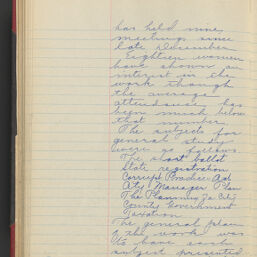 has held nine
meetings since
late December.
Eighteen women
have shown an
interest in the
work though
the average
attendance has
been much below
that number.
The subjects for
general study
were as follows
The short ballot
State registration
Corrupt Practice Act
City Manager Plan
The Planning of a City
County Government
Taxation
The general plan
of the work was
to have each
subject presented